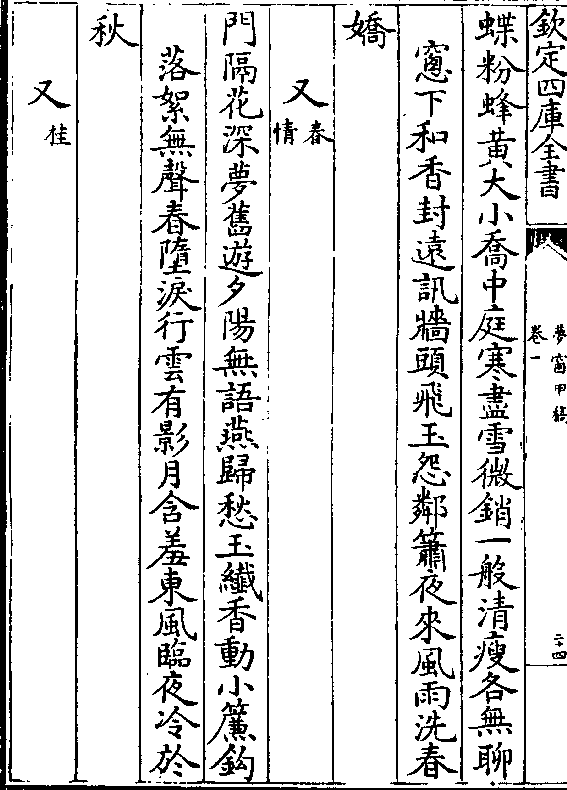 欽定四庫全書
夢窗甲稿
卷一
二十四
蝶粉蜂黄大小喬中庭寒盡雪微銷一般清瘦各無聊
窻下和香封遠訊牆頭飛玉怨鄰簫夜來風雨洗春
嬌
又春情
門隔花深夢舊遊夕陽無語燕歸愁玉纖香動小簾鈎
落絮無聲春墮淚行雲有影月含羞東風臨夜冷於
秋
又桂